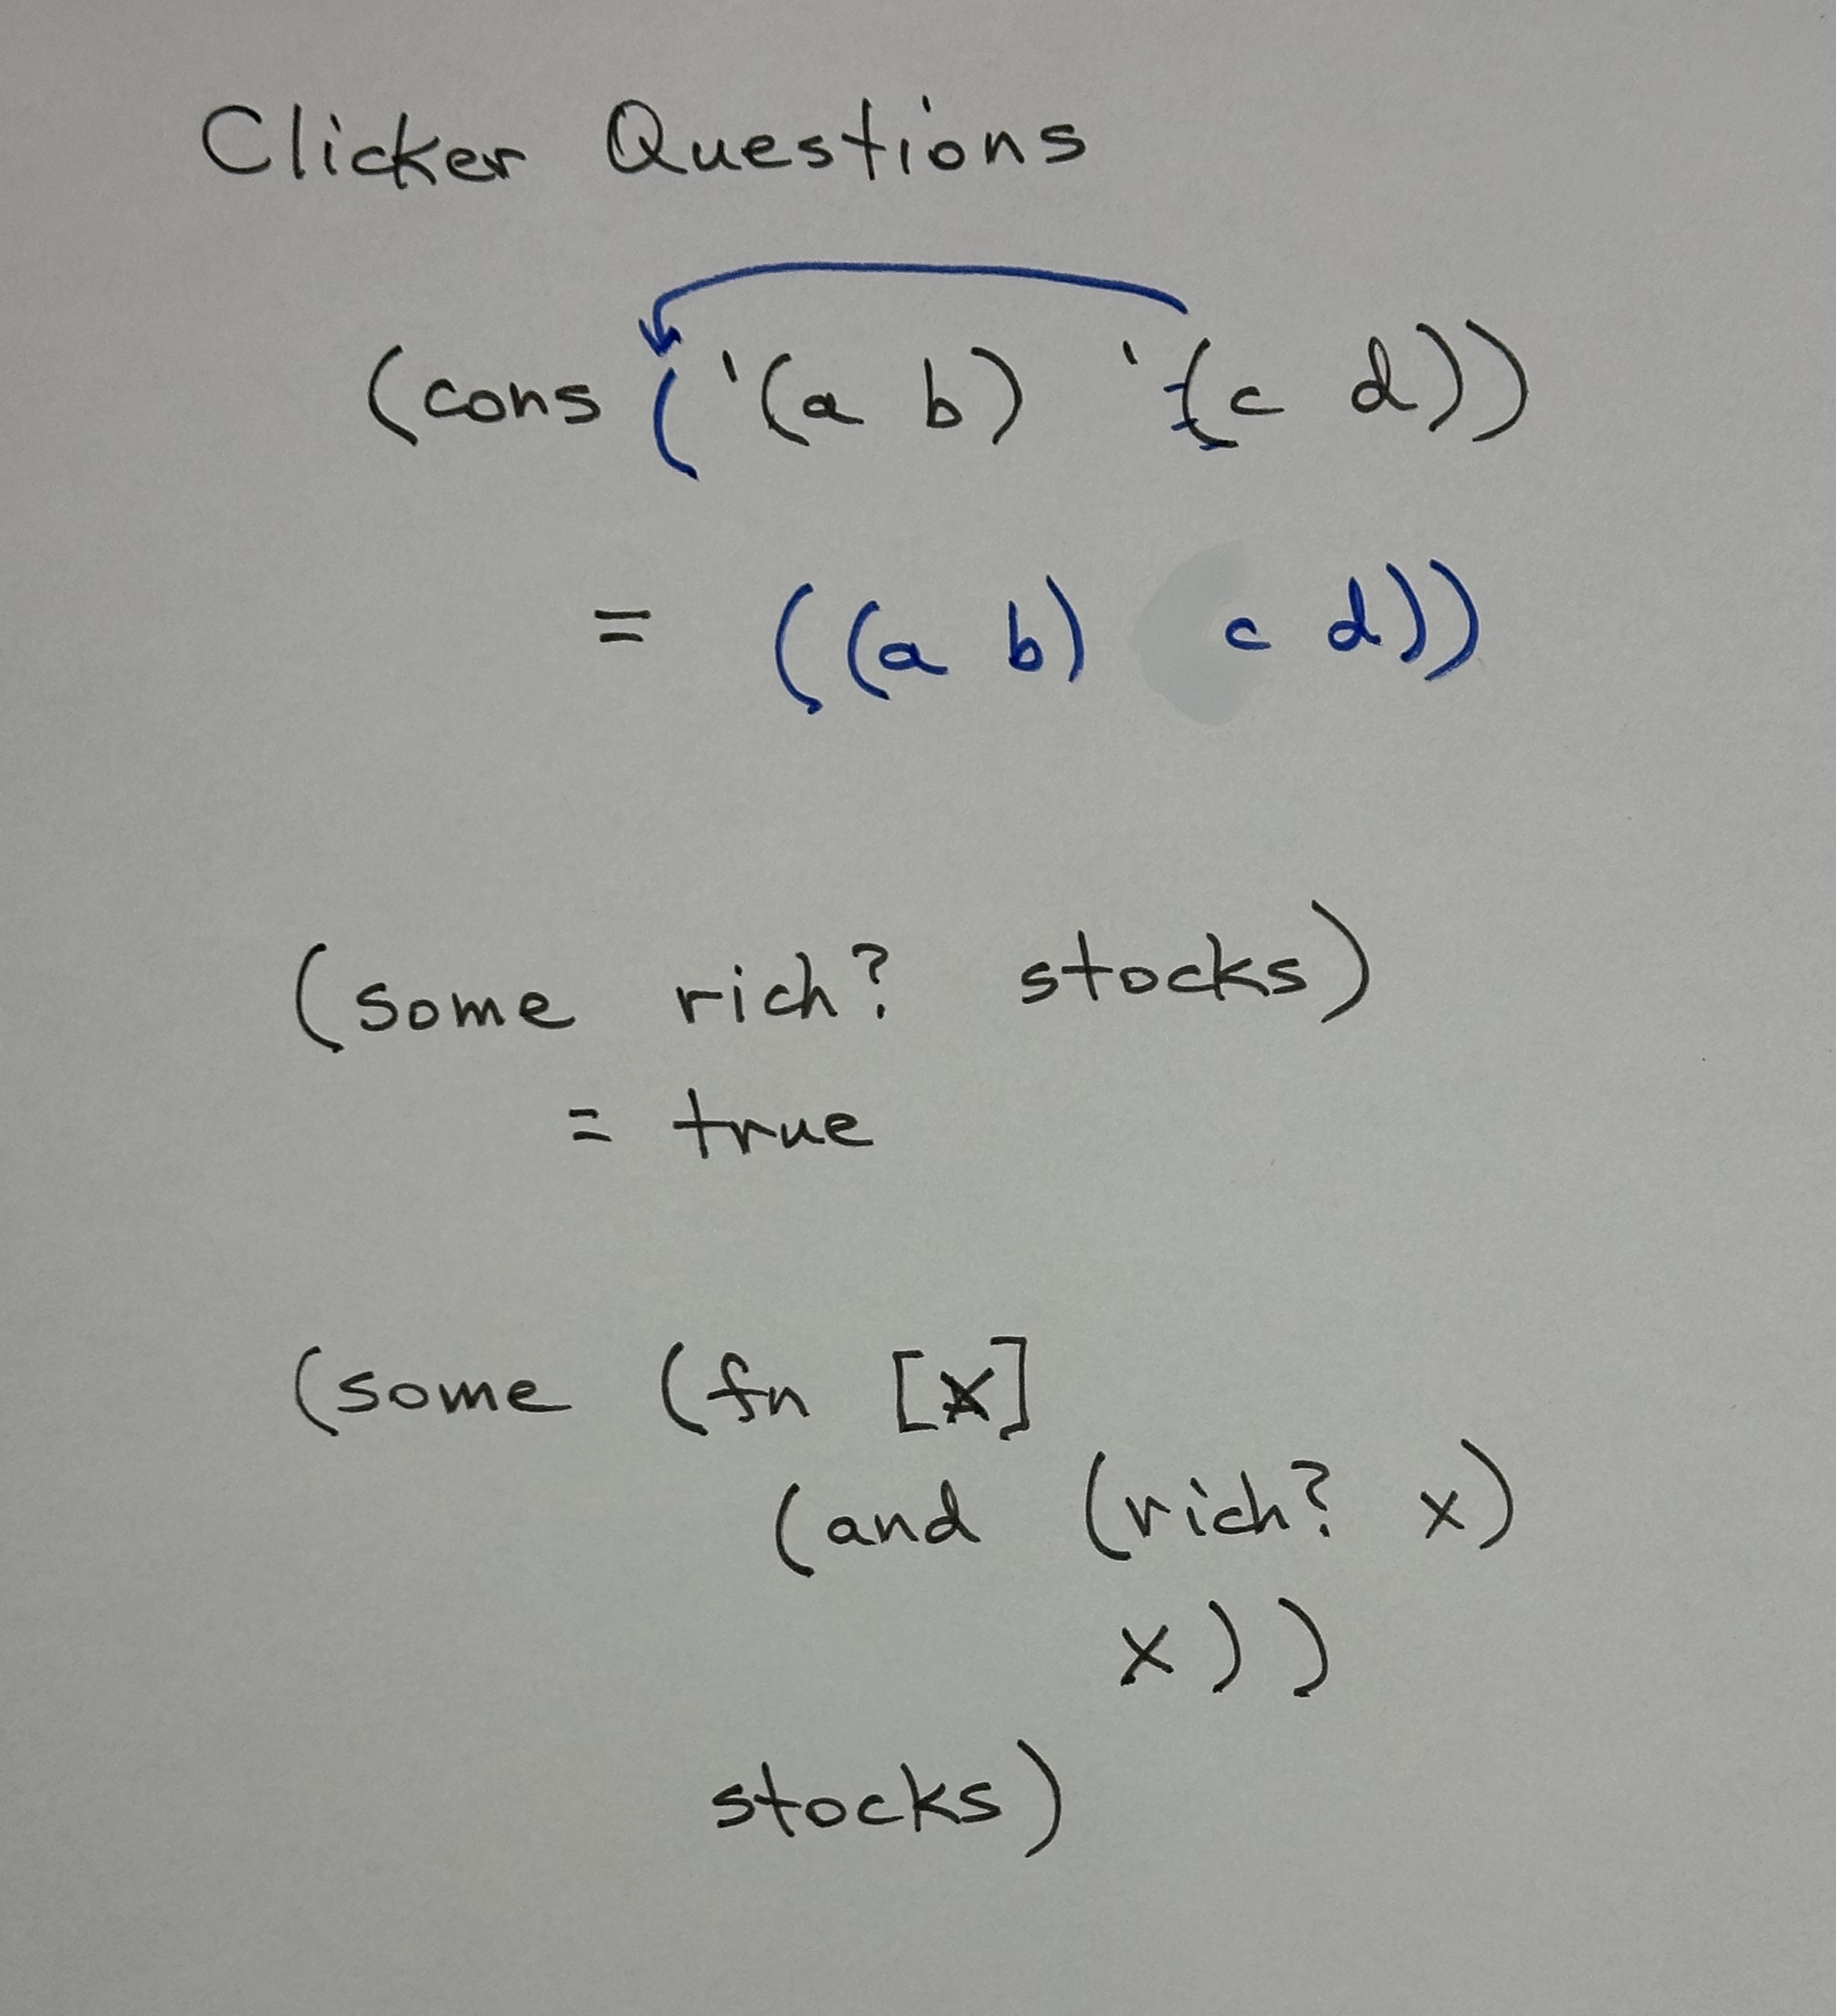 Clicker Questions
(cons ( '(a b) '(c d))
= ((a b) c d))
(some rich? stocks)
= true
(some (fn [x]
(and (rich? x)
x))
stocks)